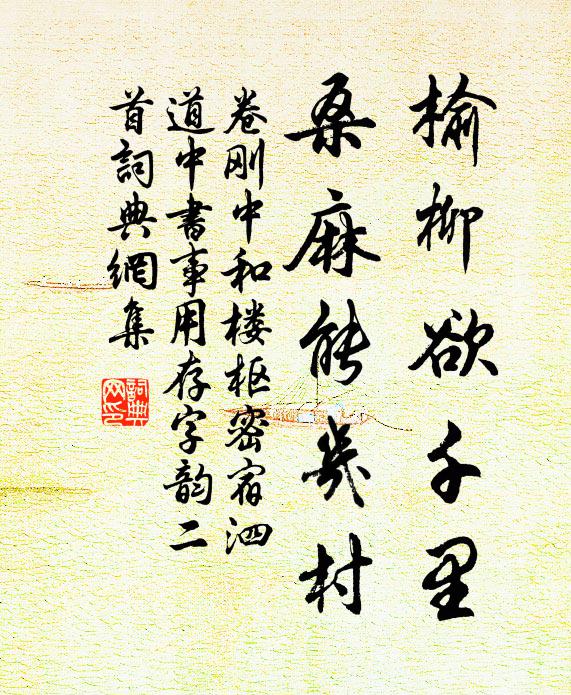 榆柳欲千里
桑麻能几村
卷刚中和楼枢密宿泗
道中书事用存字韵二
首词典网集
詞典网印